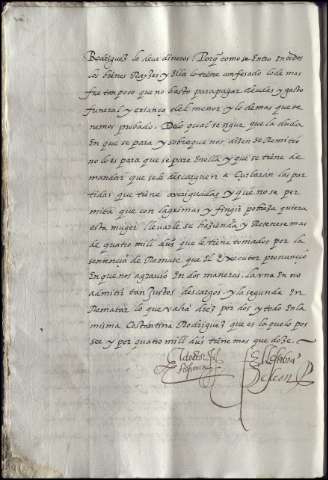 Rodriguez le deva dineros. Porq como se entro en todos
los bienes Rayzes y ella lo tiene confesado lo de mas
fue tan poco que no basto para pagar deudas y gasto
funeral y criança del menor y lo demas que te
nemos provado. De lo qual se sigue que la duda
En que se para y sobre que nos dizen se Remitio
no lo es para que se pare En ella y que se tiene de
mandar que se le descarguen a Esclarin las par
tidas que tiene averiguadas y que no se per
mita que con lagrimas y fingir pobreza quiera
esta muger llevarle su hazienda y Retenerse mas
de quatro mill dus que le tiene tomados por la
sentencia de Remate que El Executor pronuncio
En que nos agravio En dos maneras. La una En no
admitir tan justos descargos y la segunda En
Rematar lo que valia diez por dos y todo En la
misma Costantina Rodriguez que es la que lo pos
see y por quatro mill dus tiene mas que doze.
El doctor